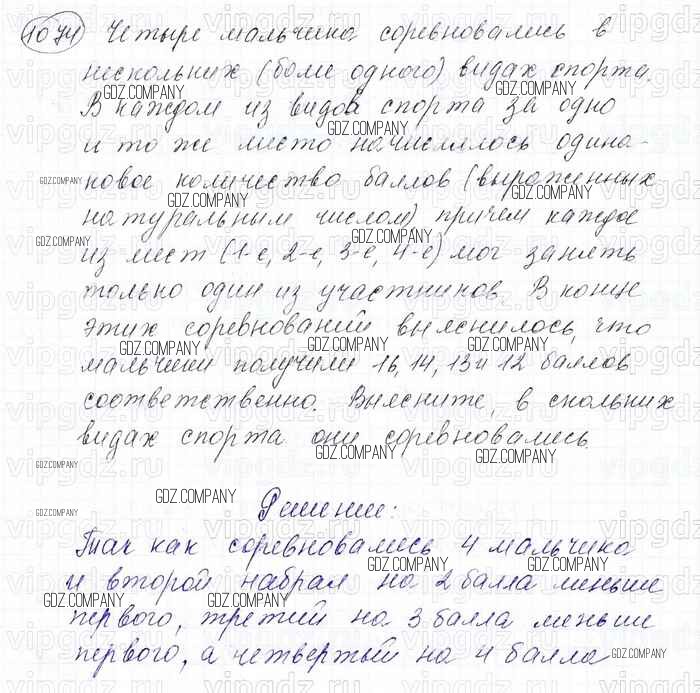 1074 Четыре мальчика соревновались в
нескольких (более одного) видах спорта.
В каждом из видов спорта за одно
и то же место начислялось одина-
ковое количество баллов (выраженных
натуральным числом), причём каждое
из мест (1-е, 2-е, 3-е, 4-е) мог занять
только один из участников. В конце
этих соревнований выяснилось, что
мальчики получили 16, 14, 13 и 12 баллов
соответственно. Выясните, в скольких
видах спорта они соревновались.
Решение:
Так как соревновались 4 мальчика
и второй набрал на 2 балла меньше
первого, третий на 3 балла меньше
первого, а четвертый на 4 балла